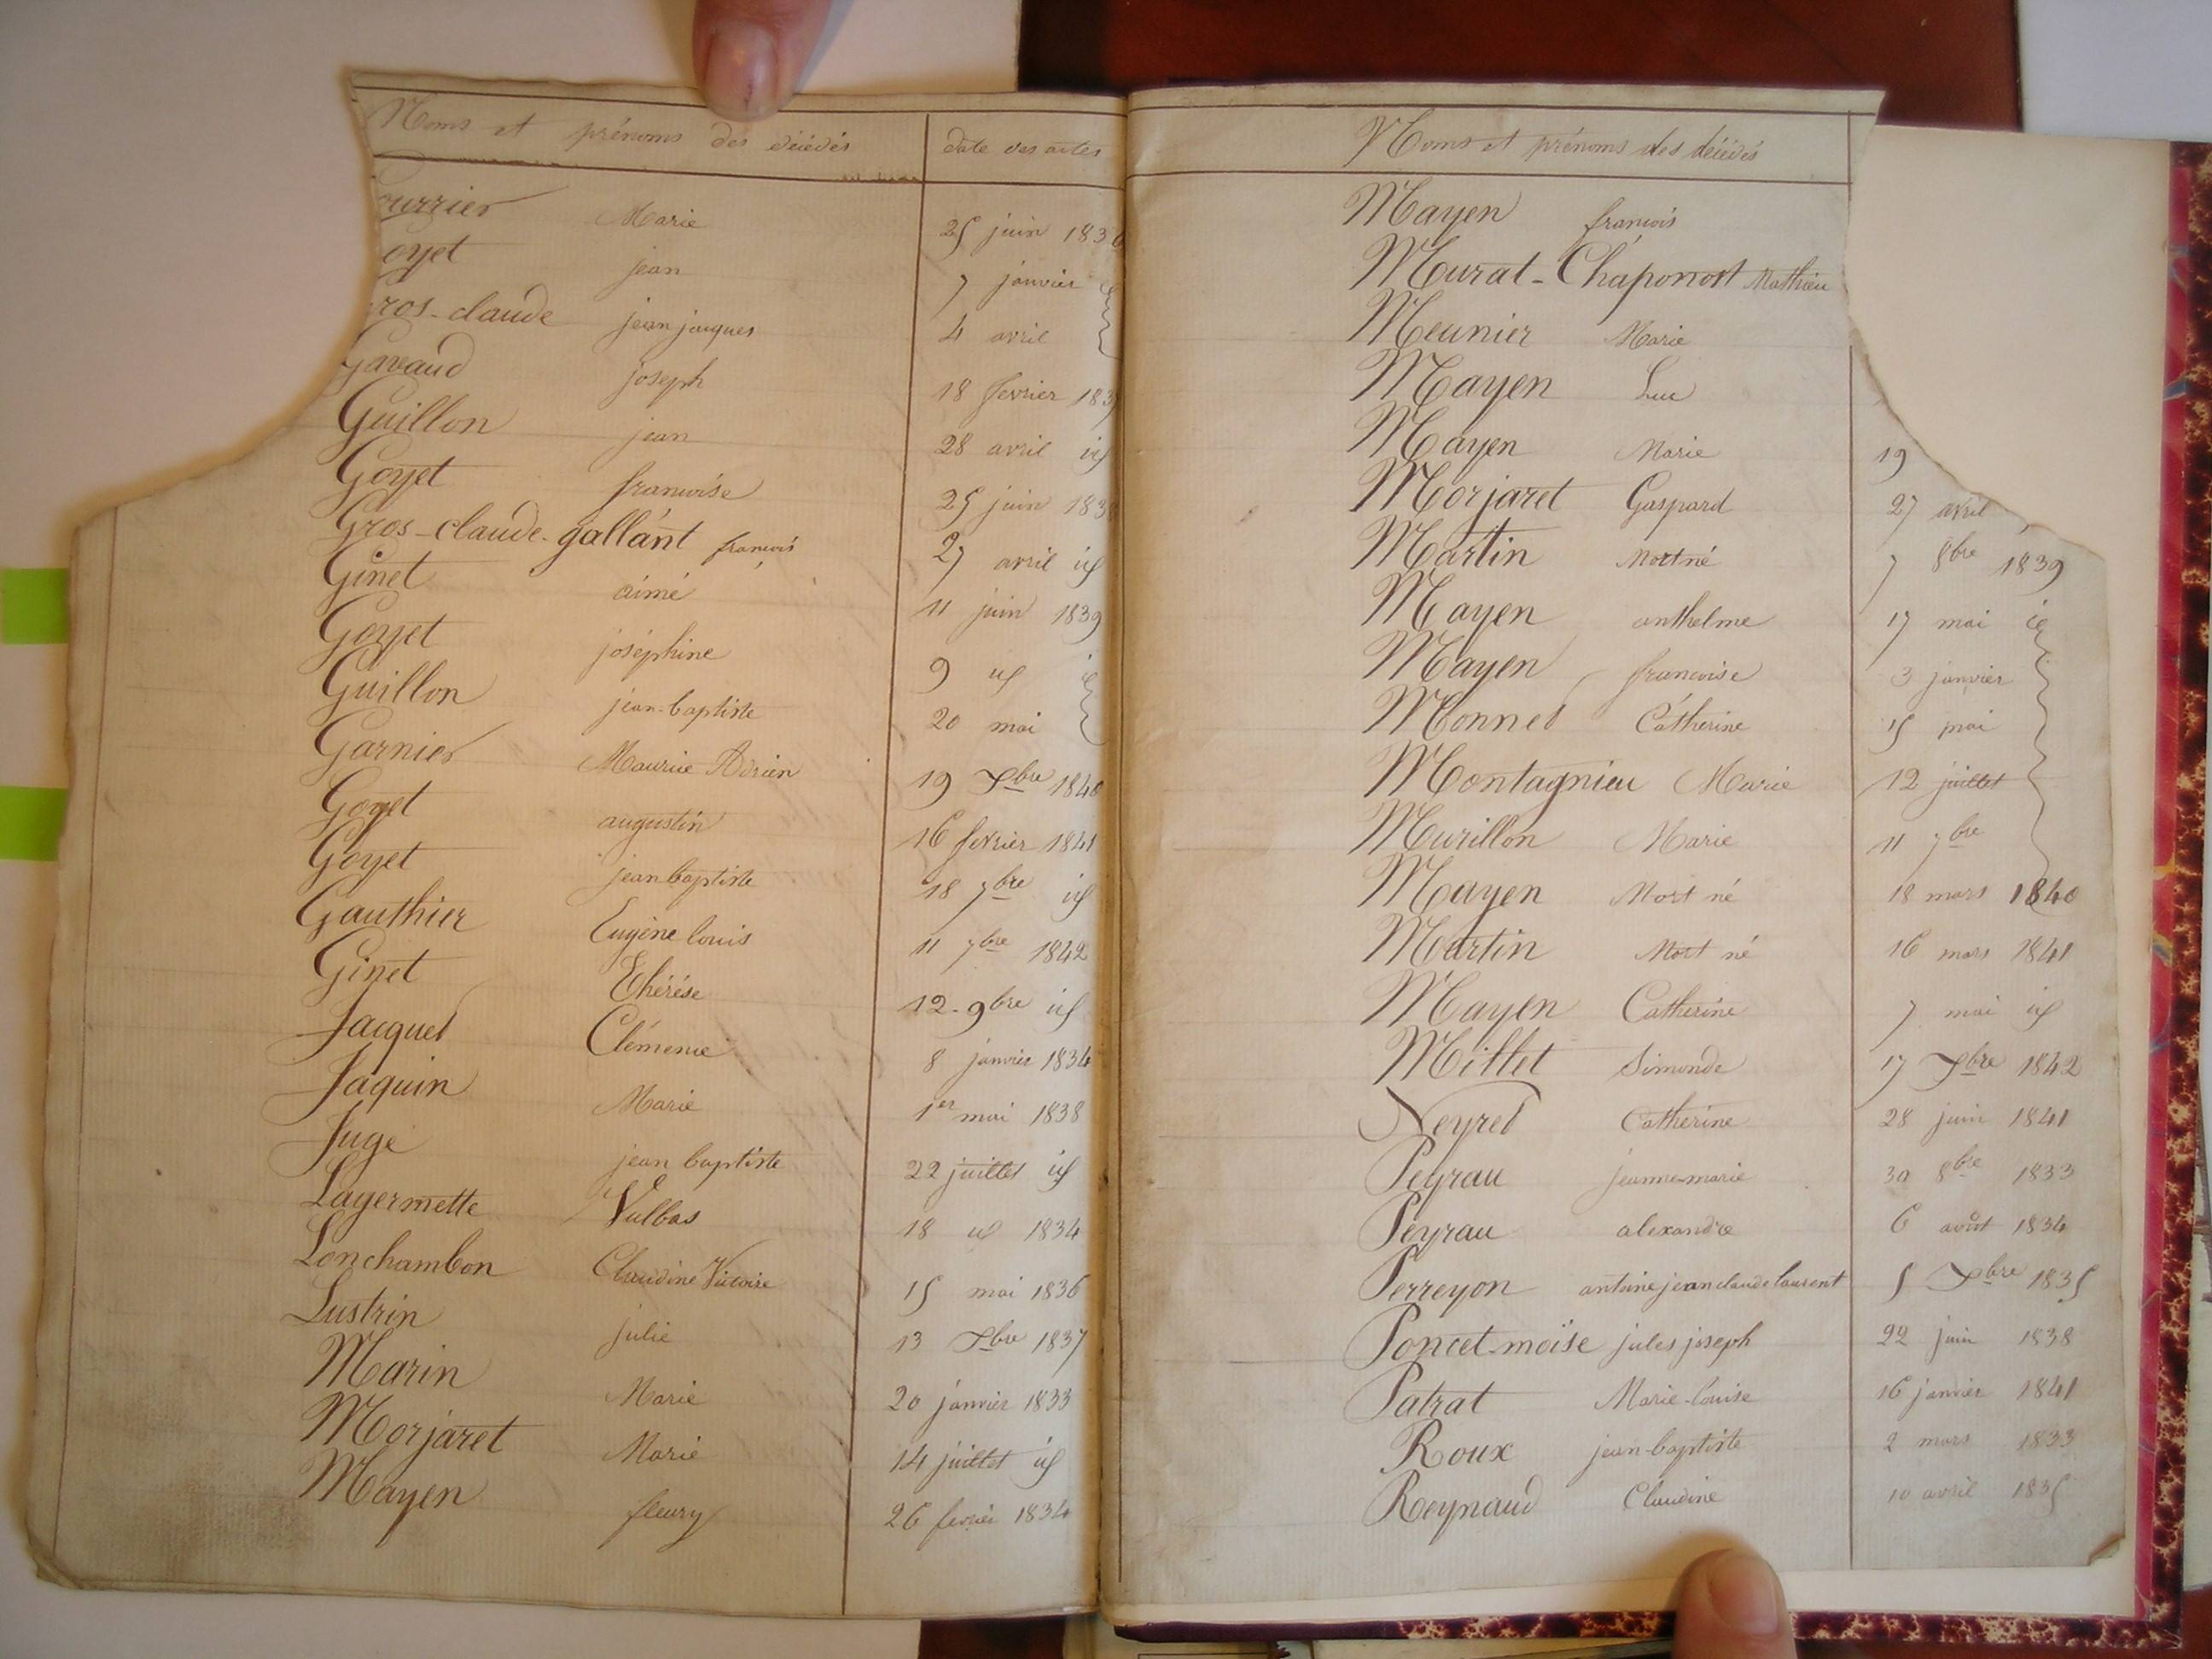 Noms et prénoms des décédés date des actes
ourrier Marie 25 juin 1836
oyet jean 7 janvier
ros-claude jean jacques 4 avril
Gavaud joseph 18 fevrier 183
Guillon jean 28 avril id
Goyet francoise 25 juin 1838
Gros-claude-gallant francois 27 avril id
Ginet aimé 11 juin 1839
Goyet joséphine 9 id
Guillon jean-baptiste 20 mai
Garnier Maurice Adrien 19 Xbre 1840
Goyet augustin 16 fevrier 1841
Goyet jean baptiste 18 7bre id
Gauthier Eugène louis 11 7bre 1842
Ginet Thérése 12-9bre id
Jacquet Clémence 8 janvier 1834
Jaquin Marie 1er mai 1838
Juge jean baptiste 22 juillet id
Layermette Vulbas 18 id 1834
Lonchambon Claudine Victoire 15 mai 1836
Lustrin julie 13 Xbre 1837
Marin Marie 20 janvier 1833
Morjaret Marie 14 juillet id
Mayen fleury 26 fevrier 1834
Noms et prénoms des décédés
Mayen francois
Murat-Chaponost Mathieu
Meunier Marie
Mayen Luc
Mayen Marie 19
Morjaret Gaspard 27 avril
Martin Mort né 7 8bre 1839
Mayen anthelme 17 mai
Mayen francoise 3 janvier
Monnet Catherine 15 mai
Montagnieu Marie 12 juillet
Murillon Marie 11 7bre
Mayen Mort né 18 mars 1840
Martin Mort né 16 mars 1841
Mayen Catherine 7 mai id
Millet Simonde 17 Xbre 1842
Neyret Catherine 28 juin 1841
Peyrau jeanne-marie 30 8bre 1833
Peyrau alexandre 6 août 1834
Perreyon antoine jean claude laurent 5 Xbre 1835
Poncet-moïse jules joseph 22 juin 1838
Patrat Marie-louise 16 janvier 1841
Roux jean-baptiste 2 mars 1833
Reynaud Claudine 10 avril 1835